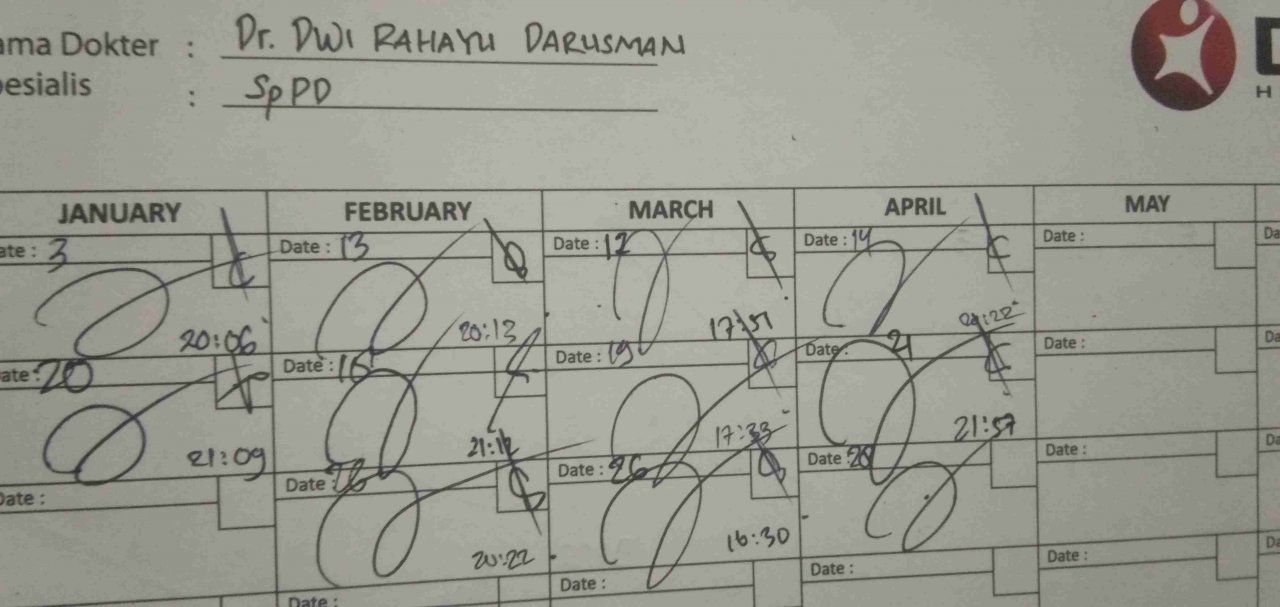 ama Dokter : Dr. DWI RAHAYU DARUSMAN
pesialis : SpPD
JANUARY FEBRUARY MARCH APRIL MAY
ate : 3 Date : 13 Date : 12 Date : 14 Date : Da
20:06 20:13 17:51
ate : 20 Date : Date : 19 Date : 21 Date : Da
21:09 21:12 17:33 21:57
Date : Date : Date : 26 Date : 28 Date : Da
20:22 16:30
Date : Date : Date : Date : Da